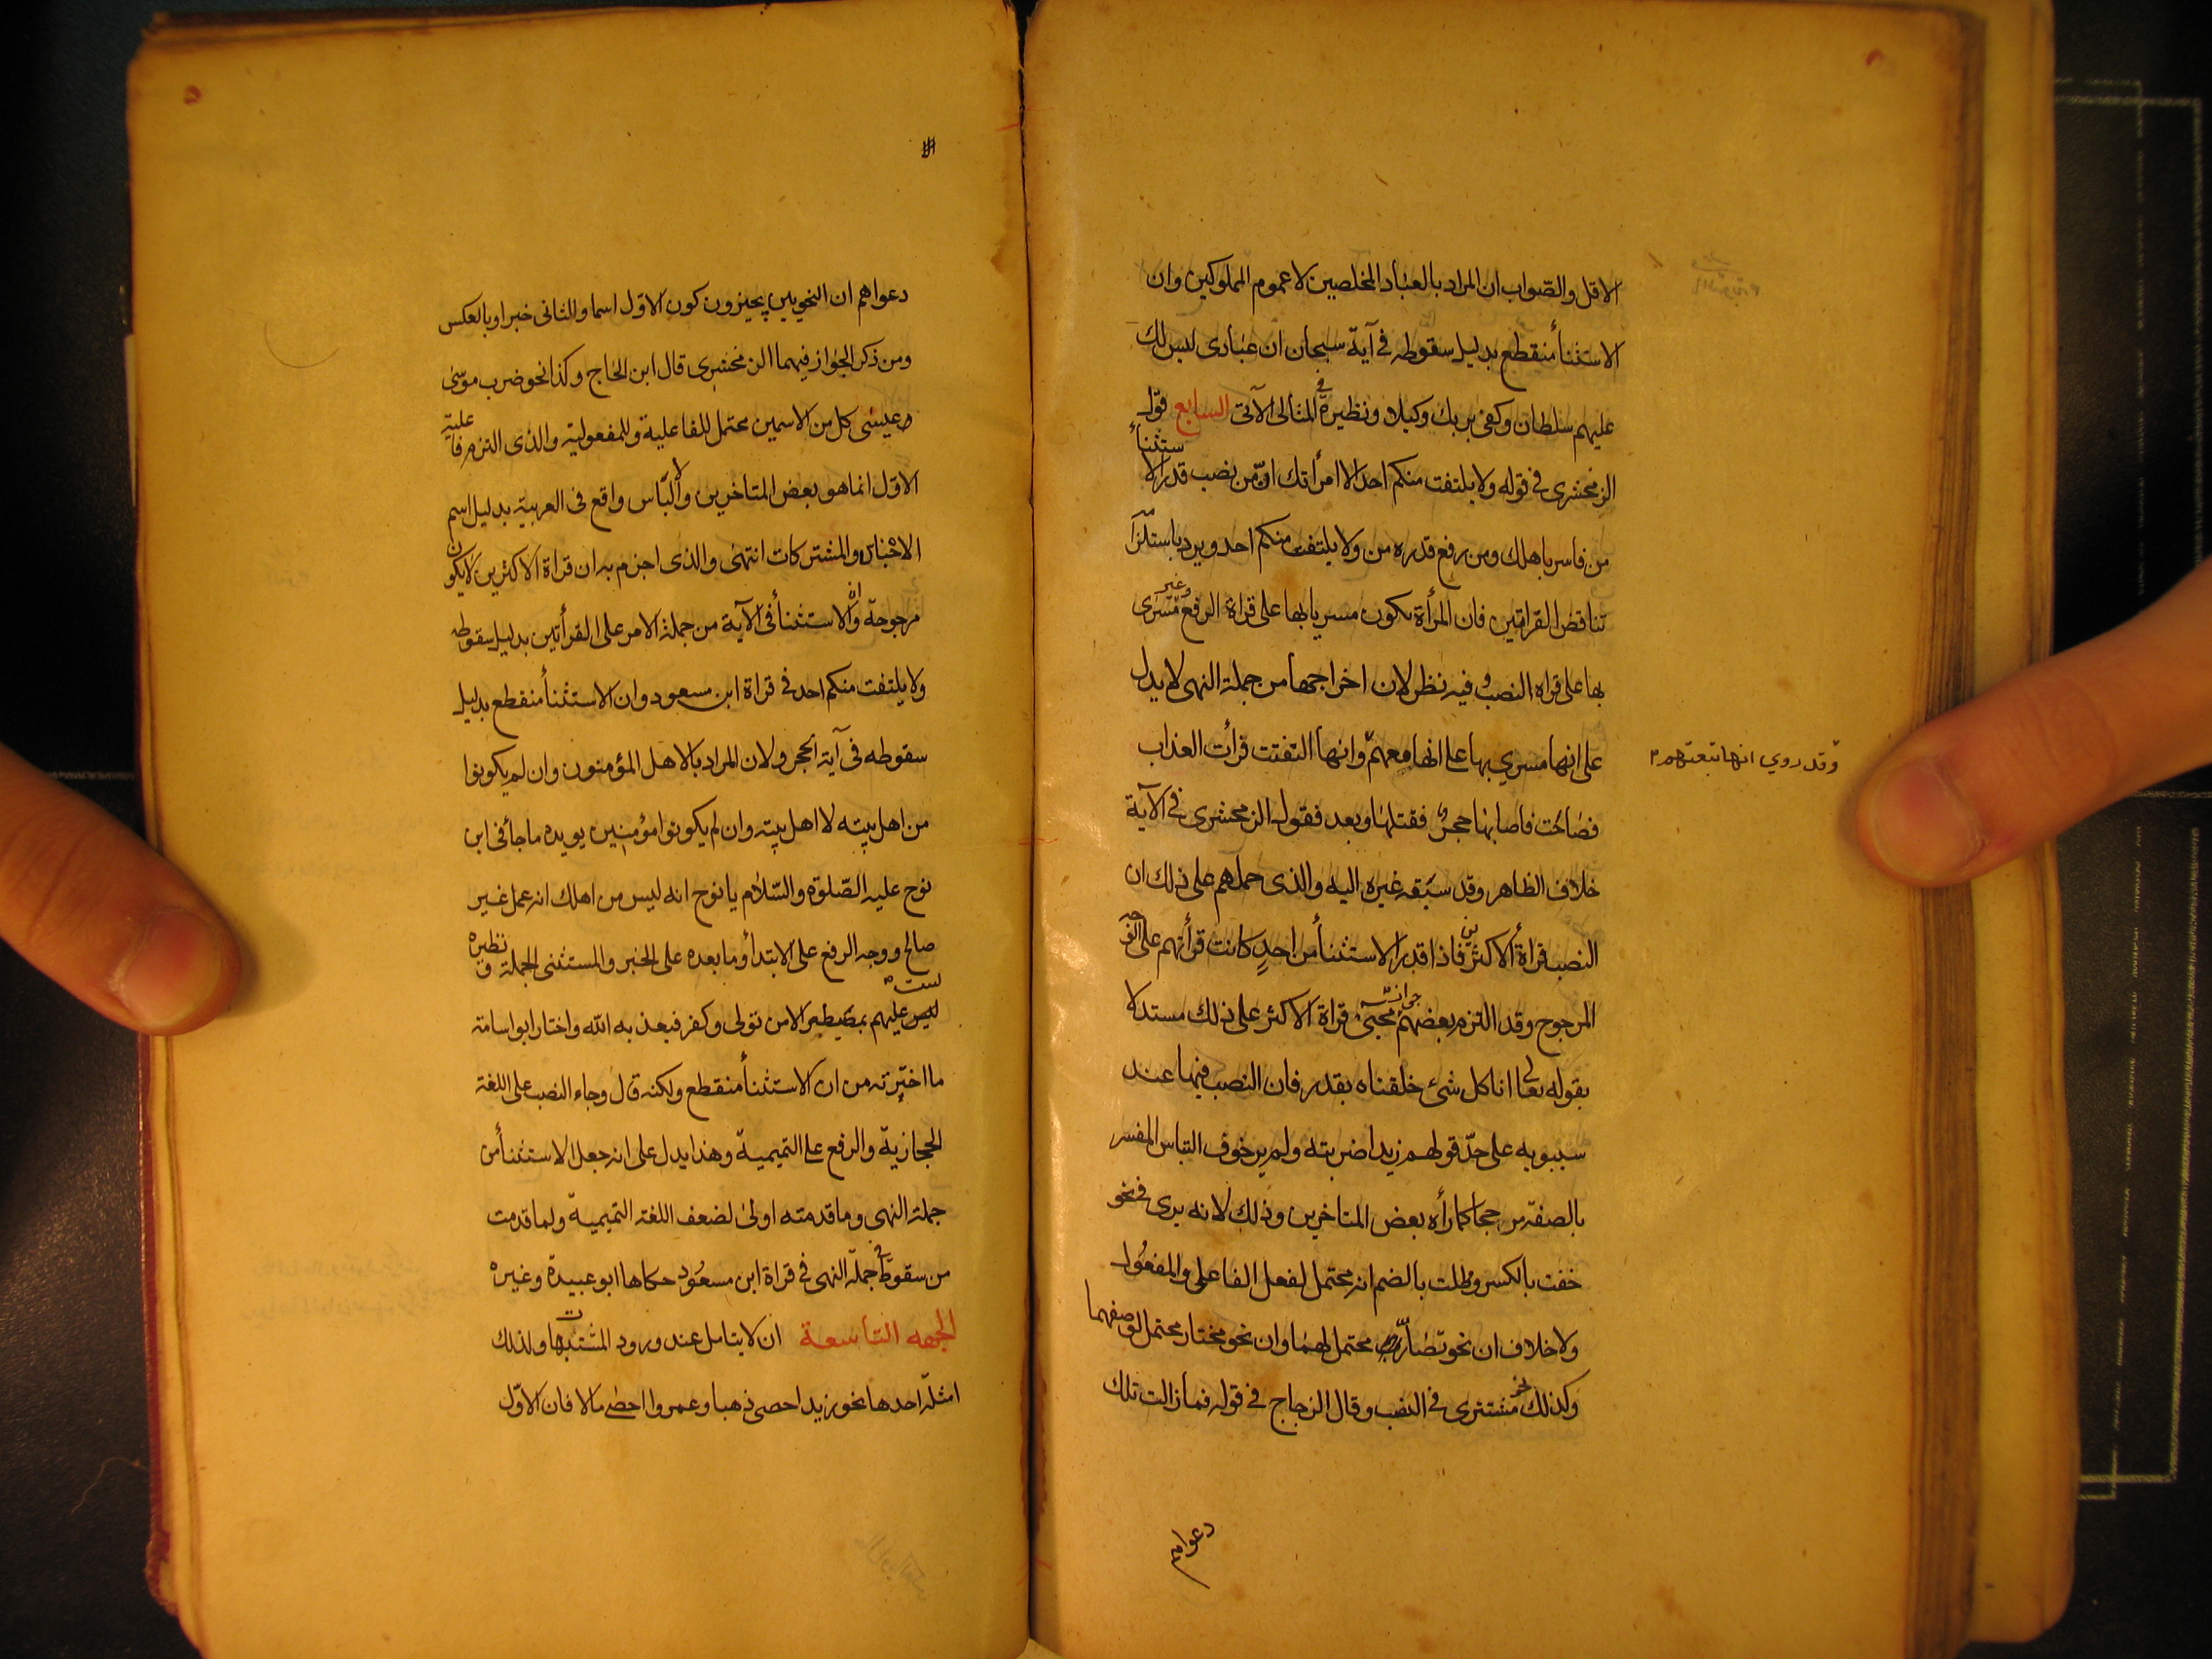 الاقل والصّواب ان المراد بالعباد المخلصين لا عموم المملوكين وان
الاستثنأ منقطع بدليل سقوطه فى آية سبحان ان عبادى ليس لك
عليهم سلطان وكفى بربك وكيلا ونظيرة فى المثال الآتى السابع قول
الزمخشرى فى قوله ولا يلتفت منكم احد الا امرأتك ان من نصب قدر الاستثنأ
من فاسر باهلك ومن رفع قدره من ولا يلتفت منكم احد ويرد باستلزام
تناقض القراتين فان المرأة تكون مسريا بها على قراة الرفع وغير مسرى
بها على قراه النصب وفيه نظر لان اخراجها من جملة النهى لا يدل
على انها مسري بها على انها معهم وانها التفتت فرأت العذاب
وقد روي انها تبعتهم
فصاحت فاصابها حجر فقتلها وبعد فقول الزمخشرى فى الآية
خلاف الظاهر وقد سبقه غيره اليه والذى حملهم على ذلك ان
النصب قراة الاكثرين فاذا قدر الاستثنأ من احد كانت قرأتهم على الوجه
المرجوح وقد التزم بعضهم جواز مجئ قراة الاكثر على ذلك مستدلا
بقوله تعالى انا كل شئ خلقناه بقدر فان النصب فيها عند
سيبويه على حدّ قولهم زيدا ضربته ولم ير خوف التباس المفسر
بالصفة مرجحا كما رأه بعض المتاخرين وذلك لانه يرى فى نحو
خفت بالكسر وطلت بالضم انه محتمل لفعل الفاعل والمفعول
ولا خلاف ان نحو تضارّ محتمل لهما وان نحو مختار محتمل لوصفهما
وكذلك نحو مشترى فى النسب وقال الزجاج فى قوله فما زالت تلك
دعواهم
دعواهم ان النحويين يجيزون كون الاوّل اسما والثانى خبرا وبالعكس
ومن ذكر الجواز فيهما الزمخشرى قال ابن الحاج وكذا نحو ضرب موسى
عيسى كل من الاسمين محتمل للفاعلية وللمفعولية والذى التزم فاعلية
الاوّل انما هو بعض المتاخرين والالباس واقع فى العربية بدليل اسم
الاجناس والمشتركات انتهى والذى اجزم به ان قراة الاكثرين لا يكون
مرجوحة وان الاستثنأ فى الآية من جملة الامر على القرأتين بدليل سقوطه
ولا يلتفت منكم احد فى قراة ابن مسعود وان الاستثنأ منقطع بدليل
سقوطه فى آية الحجر ولان المراد بالاهل المؤمنون وان لم يكونوا
من اهل بيته لا اهل بيته وان لم يكونوا مؤمنين يويده ما جأ فى ابن
نوح عليه الصّلوة والسّلام يا نوح انه ليس من اهلك انه عمل غير
صالح ووجه الرفع على الابتدأ وما بعده على الخبر والمستثنى الجملة ونظيره
لست عليهم بمصيطر الا من تولى وكفر فيعذبه الله واختار ابو اسامة
ما اخترته من ان الاستثنأ منقطع ولكنه قال وجاء النصب على اللغة
الحجازيّة والرفع على التميميّة وهذا يدل على انه جعل الاستثنأ من
جملة النهى وما قدمته اولى لضعف اللغة التميميّة ولما قدمت
من سقوط جملة النهى فى قراة ابن مسعُود حكاها ابو عبيدة وغيره
الجهه التاسعة ان لا يتامل عند ورود المشتبهات ولذلك
امثلة احدها نحو زيد احصى ذهبا وعمرو احصى مالا فان الاوّل